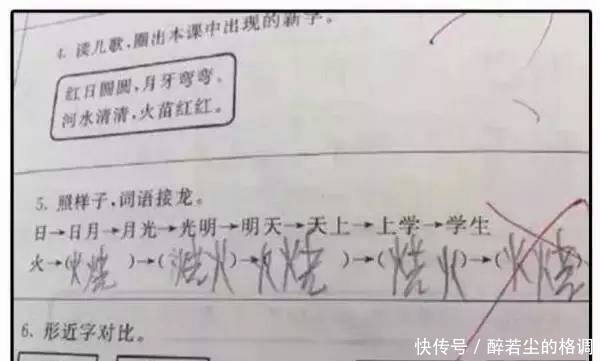 4. 读儿歌,圈出本课中出现的新字。
红日圆圆,月牙弯弯、
河水清清,火苗红红。
5. 照样子,词语接龙。
日→日月→月光→光明→明天→天上→上学→学生
火→(火烧)→(烧火)→火烧)→(烧火)→(火烧)
6. 形近字对比。
快传号 / 醉若尘的格调